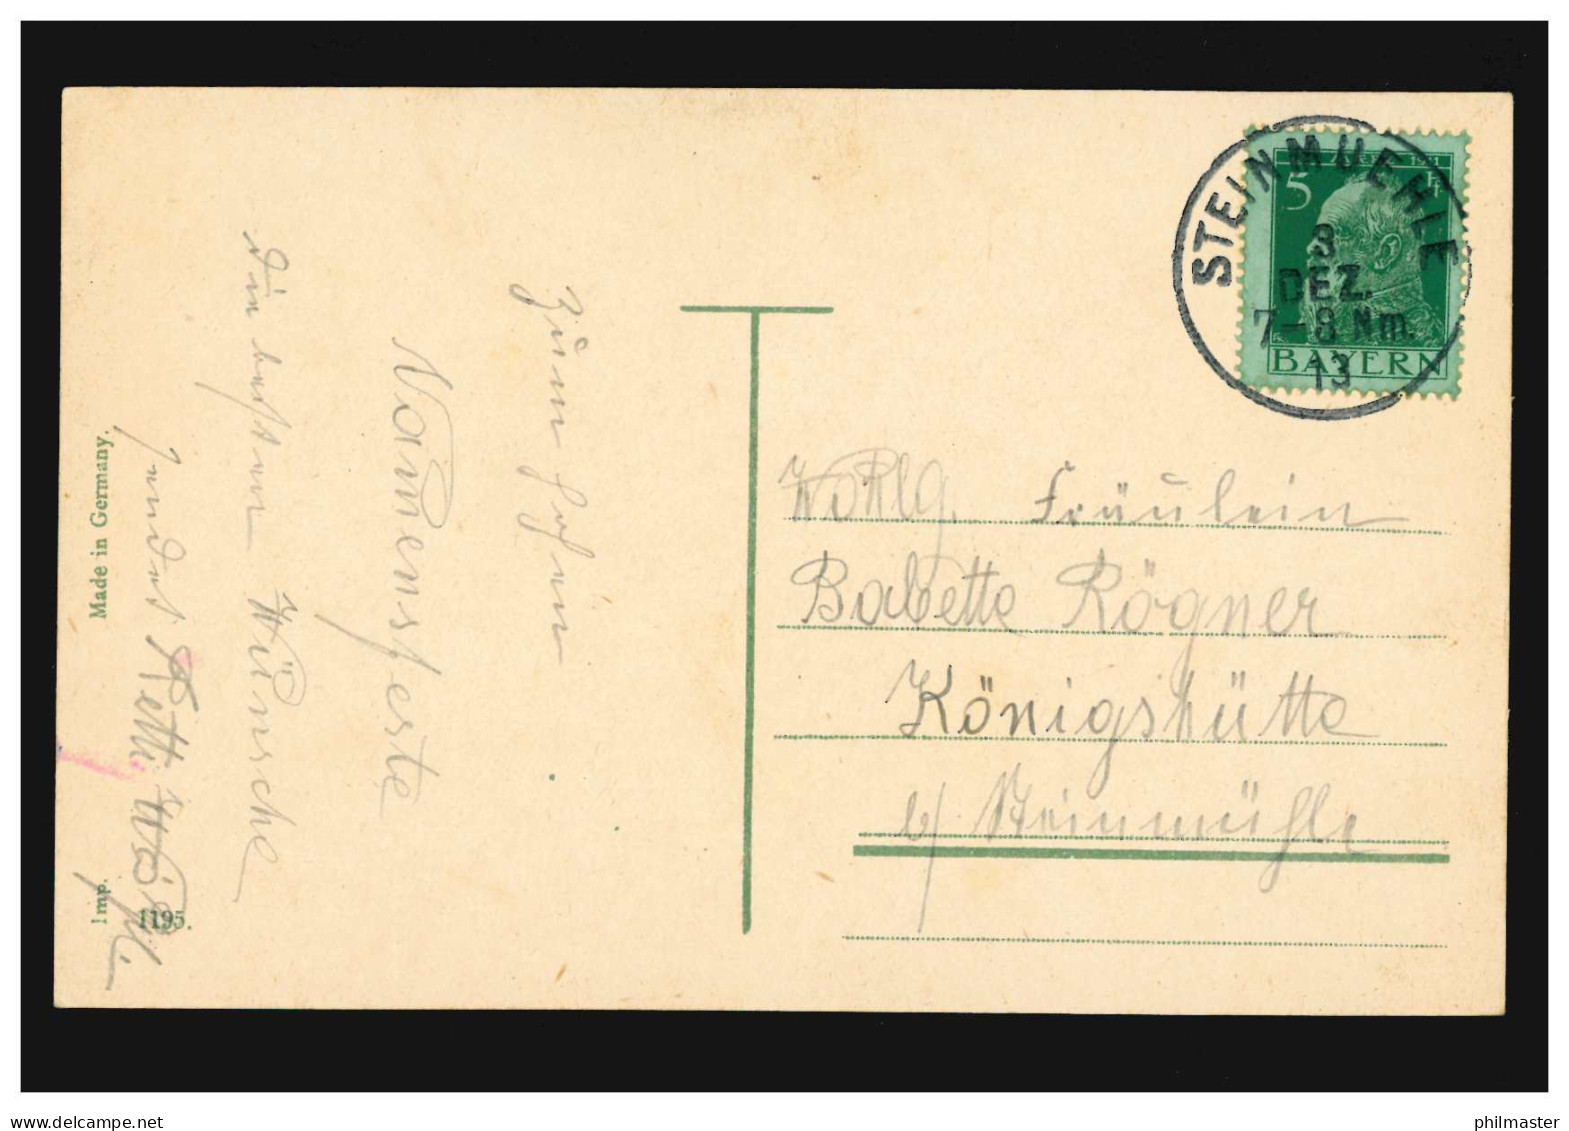 STEINMUEHLE
3
DEZ.
7-8 Nm.
13
1911
5 Pf
BAYERN
Zum hohen
Namensfeste
die besten Wünsche
sendet Retti
Made in Germany.
Imp. 1195.
Wohlg. Fräulein
Babette Rögner
Königshütte
b/ Steinmühle
www.delcampe.net
philmaster